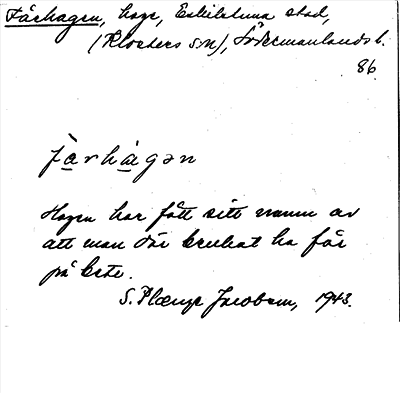 Fårhagen, hage, Eskilstuna stad,
(Klosters sn), Södermanlands l.
86.
fa̲rha̲gən
Hagen har fått sitt namn av
att man där brukat ha får
på bete.
S. Plænge Jacobson, 1943.